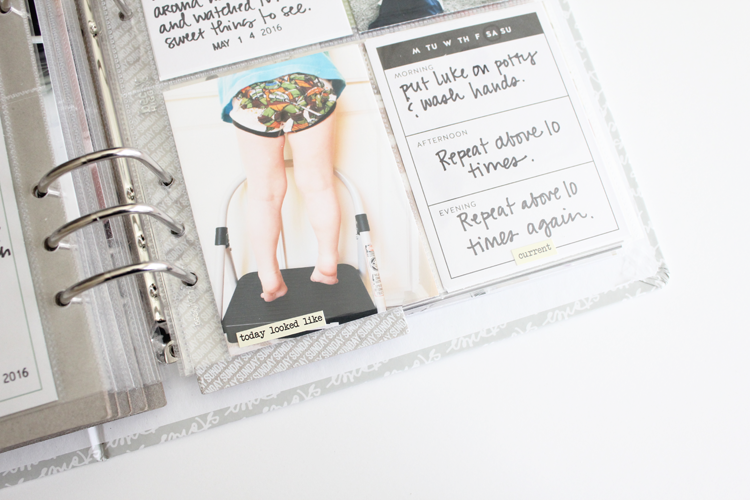 around
and watched
sweet thing to see.
MAY 14 2016
M TU W TH F SA SU
MORNING
put luke on potty
& wash hands.
AFTERNOON
Repeat above 10
times.
EVENING
Repeat above 10
times again.
current
today looked like
SUNDAY SUNDAY SUNDAY
2016